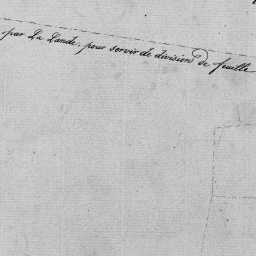 par La Lande, pour servir de division de feuille